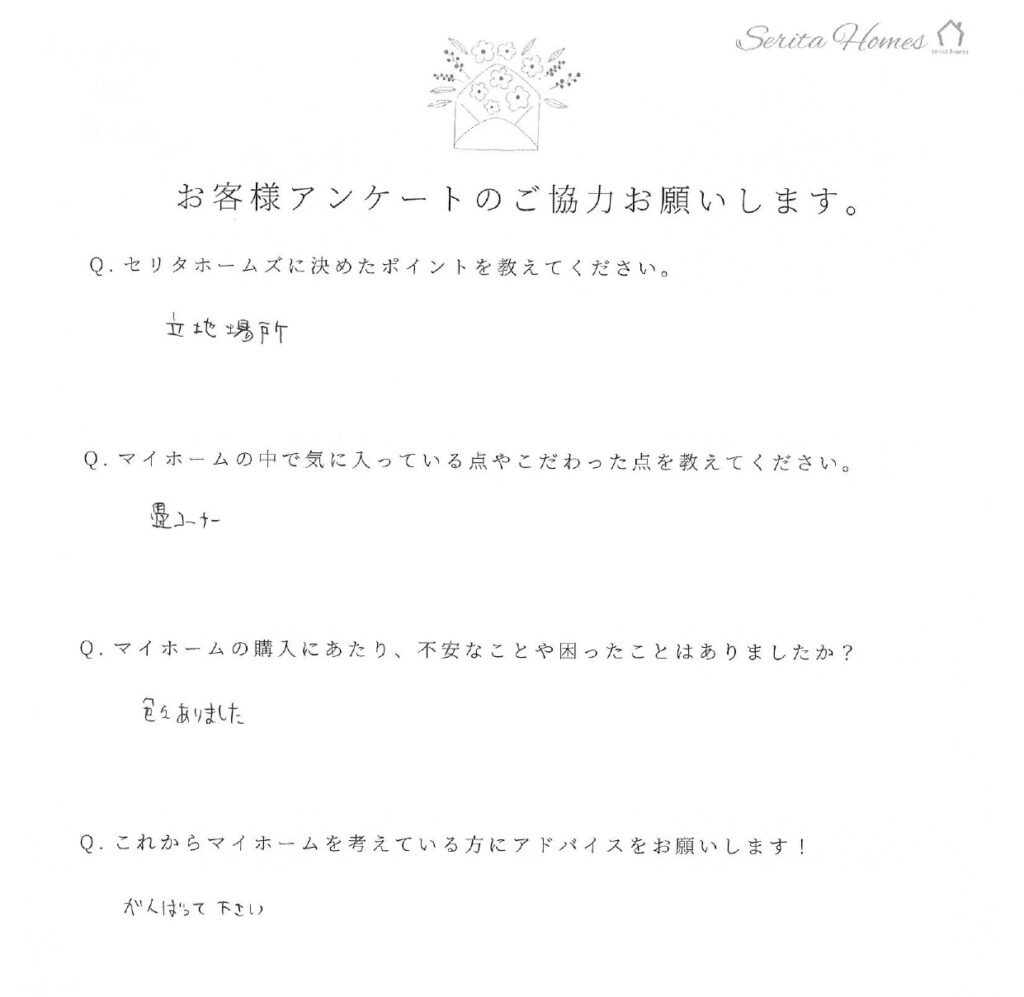 Serita Homes
serita homes
お客様アンケートのご協力お願いします。
Q. セリタホームズに決めたポイントを教えてください。
立地場所
Q. マイホームの中で気に入っている点やこだわった点を教えてください。
畳コーナー
Q. マイホームの購入にあたり、不安なことや困ったことはありましたか？
色々ありました
Q. これからマイホームを考えている方にアドバイスをお願いします！
がんばって下さい